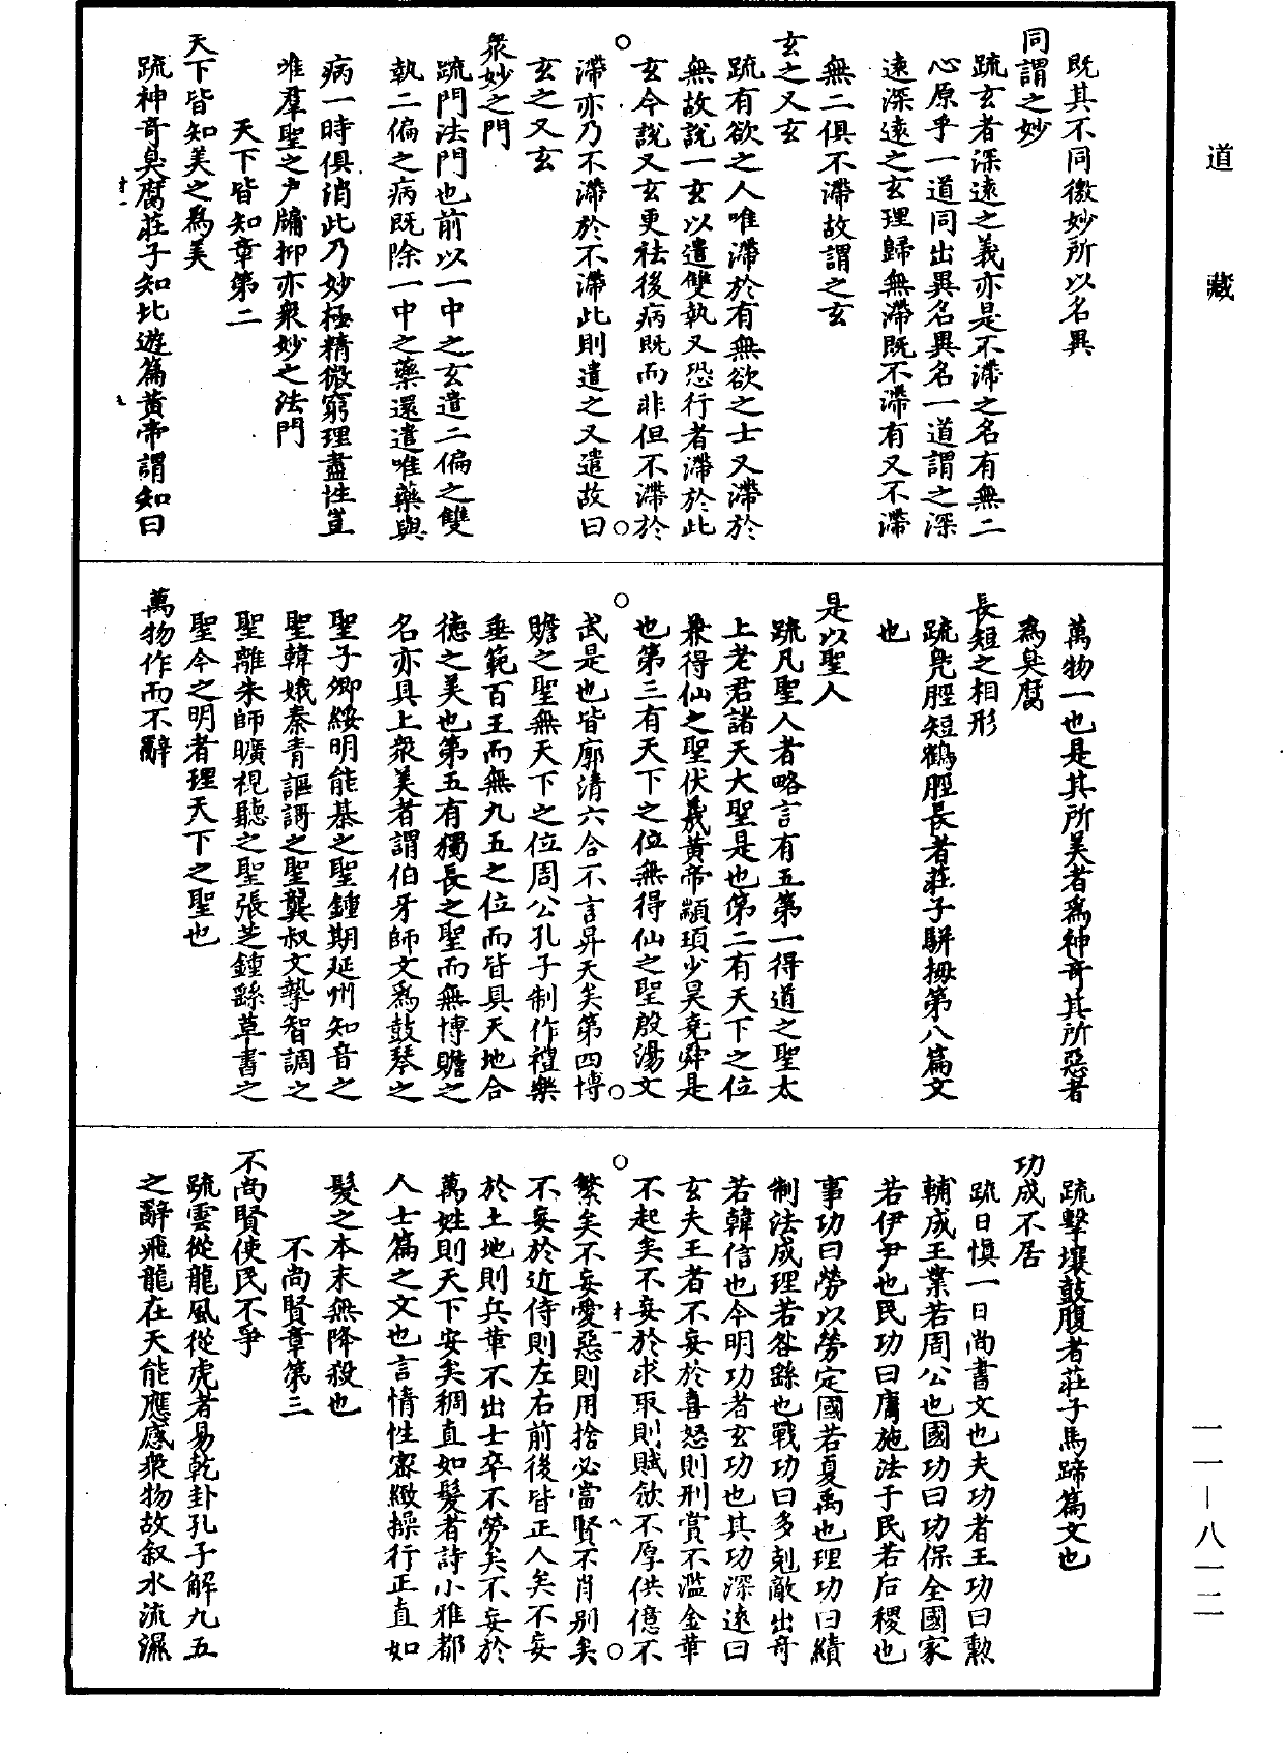 道藏
既其不同徼妙所以名異
同謂之妙
疏玄者深遠之義亦是不滯之名有無二
心原乎一道同出異名異名一道謂之深
遠深遠之玄理歸無滯既不滯有又不滯
無二俱不滯故謂之玄
玄之又玄
疏有欲之人唯滯於有無欲之士又滯於
無故說一玄以遣雙執又恐行者滯於此
玄今說又玄更袪後病既而非但不滯於
滯亦乃不滯於不滯此則遣之又遣故曰
玄之又玄
衆妙之門
疏門法門也前以一中之玄遣二偏之雙
執二偏之病既除一中之藥還遣唯藥與
病一時俱消此乃妙極精微窮理盡性豈
唯羣聖之戶牖抑亦衆妙之法門
天下皆知章第二
天下皆知美之爲美
疏神奇臭腐莊子知北遊篇黃帝謂知曰
萬物一也是其所美者爲神奇其所惡者
爲臭腐
長短之相形
疏鳧脛短鶴脛長者莊子駢拇第八篇文
也
是以聖人
疏凡聖人者略言有五第一得道之聖太
上老君諸天大聖是也第二有天下之位
兼得仙之聖伏羲黃帝顓頊少昊堯舜是
也第三有天下之位無得仙之聖殷湯文
武是也皆廓清六合不言昇天矣第四博
贍之聖無天下之位周公孔子制作禮樂
垂範百王而無九五之位而皆具天地合
德之美也第五有獨長之聖而無博贍之
名亦具上衆美者謂伯牙師文爲鼓琴之
聖子卿綏明能碁之聖鍾期延州知音之
聖韓娥秦青謳謌之聖龔叔文摯智調之
聖離朱師曠視聽之聖張芝鍾繇草書之
聖今之明者理天下之聖也
萬物作而不辭
疏擊壤鼓腹者莊子馬蹄篇文也
功成不居
疏日愼一日尚書文也夫功者王功曰勲
輔成王業若周公也國功曰功保全國家
若伊尹也民功曰庸施法于民若后稷也
事功曰勞以勞定國若夏禹也理功曰績
制法成理若咎繇也戰功曰多剋敵出奇
若韓信也今明功者玄功也其功深遠曰
玄夫王者不妄於喜怒則刑賞不濫金革
不起矣不妄於求取則賦斂不厚供億不
繁矣不妄愛惡則用捨必當賢不肖別矣
不妄於近侍則左右前後皆正人矣不妄
於土地則兵革不出士卒不勞矣不妄於
萬姓則天下安矣稠直如髮者詩小雅都
人士篇之文也言情性密緻操行正直如
髮之本末無降殺也
不尚賢章第三
不尚賢使民不爭
疏雲從龍風從虎者易乾卦孔子解九五
之辭飛龍在天能應感衆物故叙水流濕
一一—八一二